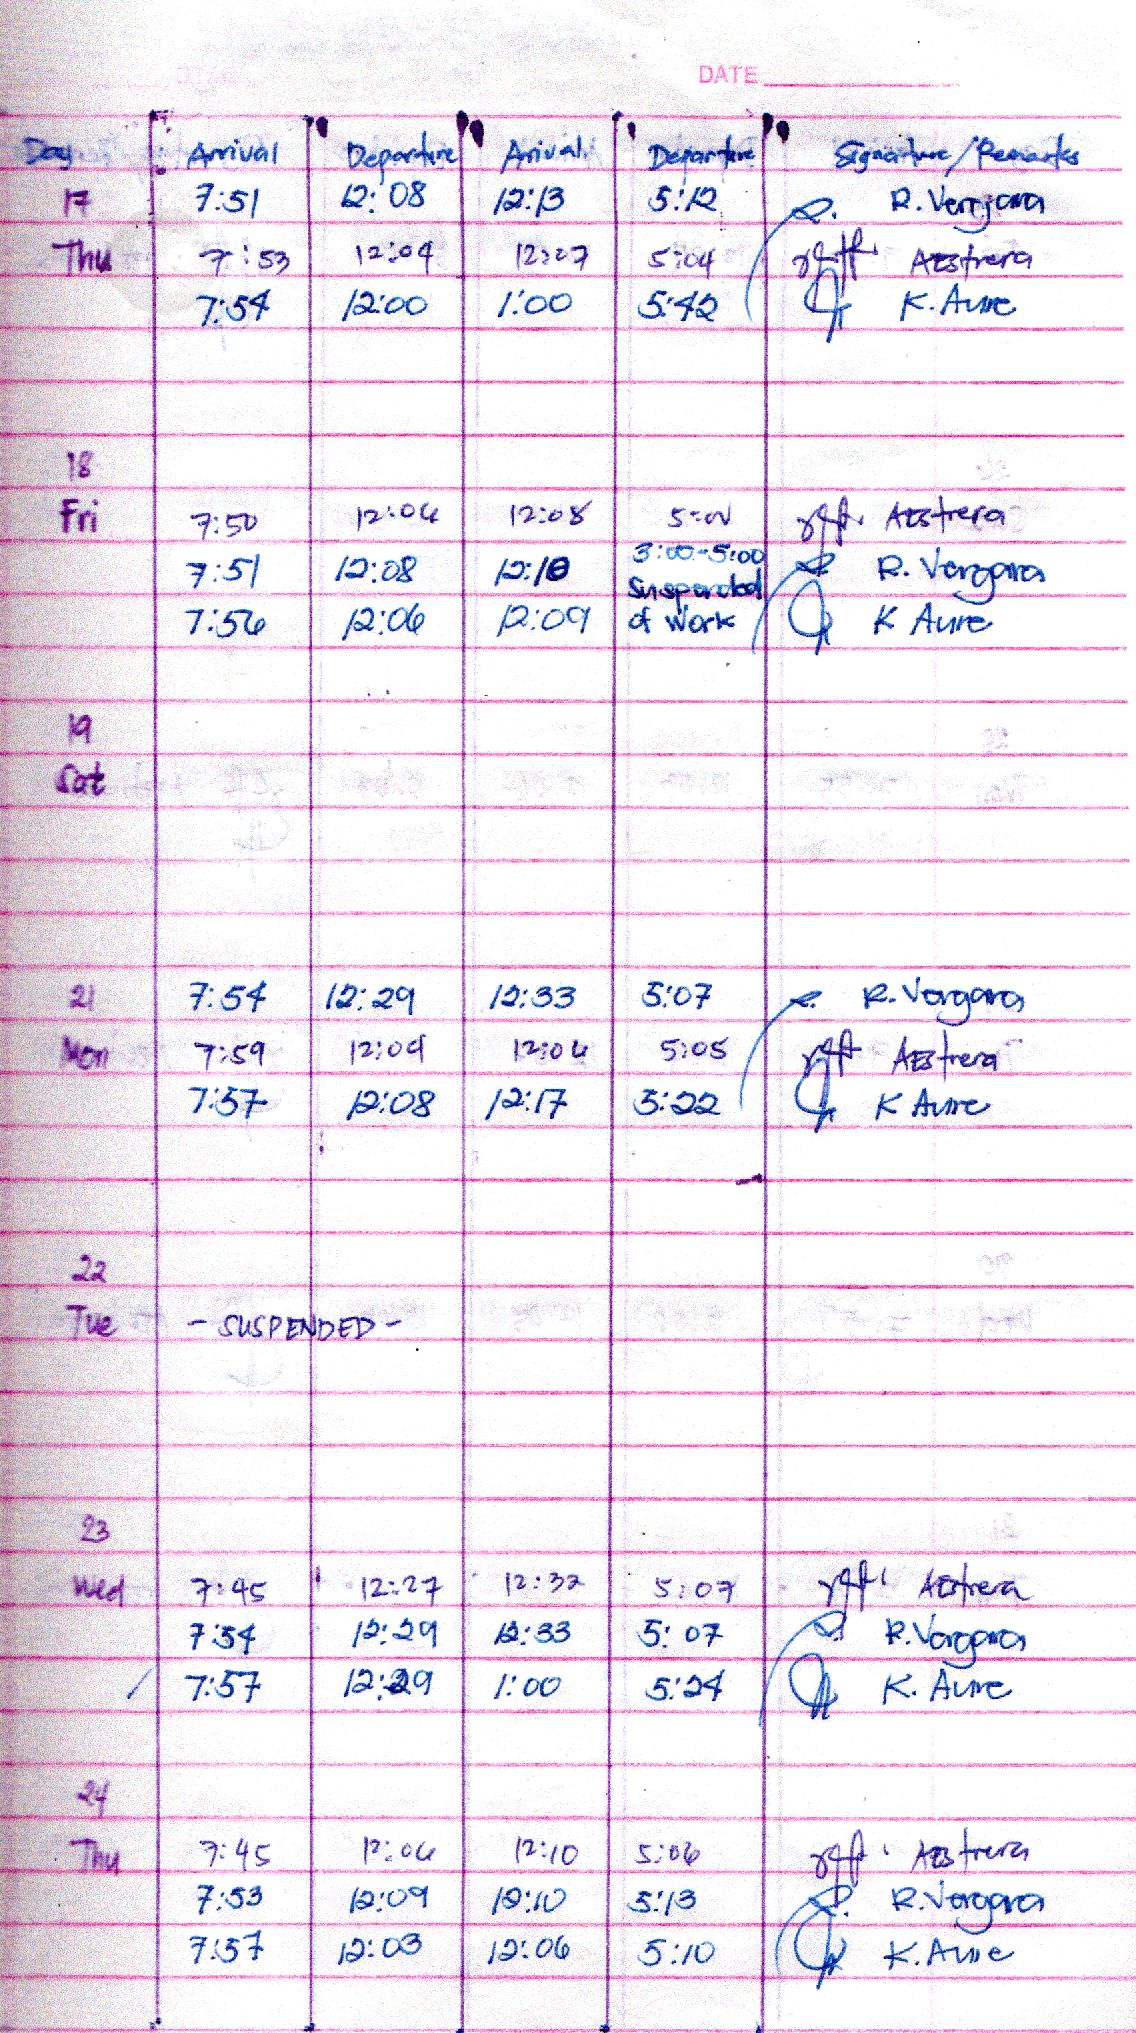 DATE
Day Arrival Departure Arrival Departure Signature/Remarks
17 7:51 12:08 12:13 5:12 R. Vergara
Thu 7:53 12:04 12:27 5:04 AEstrera
7:54 12:00 1:00 5:42 K. Aure
18
Fri 7:50 12:06 12:08 AEstrera
3:00-5:00
7:51 12:08 12:10 R. Vergara
Suspended
7:56 12:06 12:09 of Work K Aure
19
Sat
21 7:54 12:29 12:33 5:07 R. Vergara
Mon 7:59 12:04 12:06 5:05 AEstrera
7:57 12:08 12:17 5:22 K Aure
22
Tue - SUSPENDED -
23
Wed 7:45 12:27 12:32 5:07 AEstrera
7:54 12:29 12:33 5:07 R. Vergara
7:57 12:29 1:00 5:24 K. Aure
24
Thu 7:45 12:06 12:10 5:06 AEstrera
7:53 12:09 12:10 5:13 R. Vergara
7:57 12:03 12:06 5:10 K. Aure